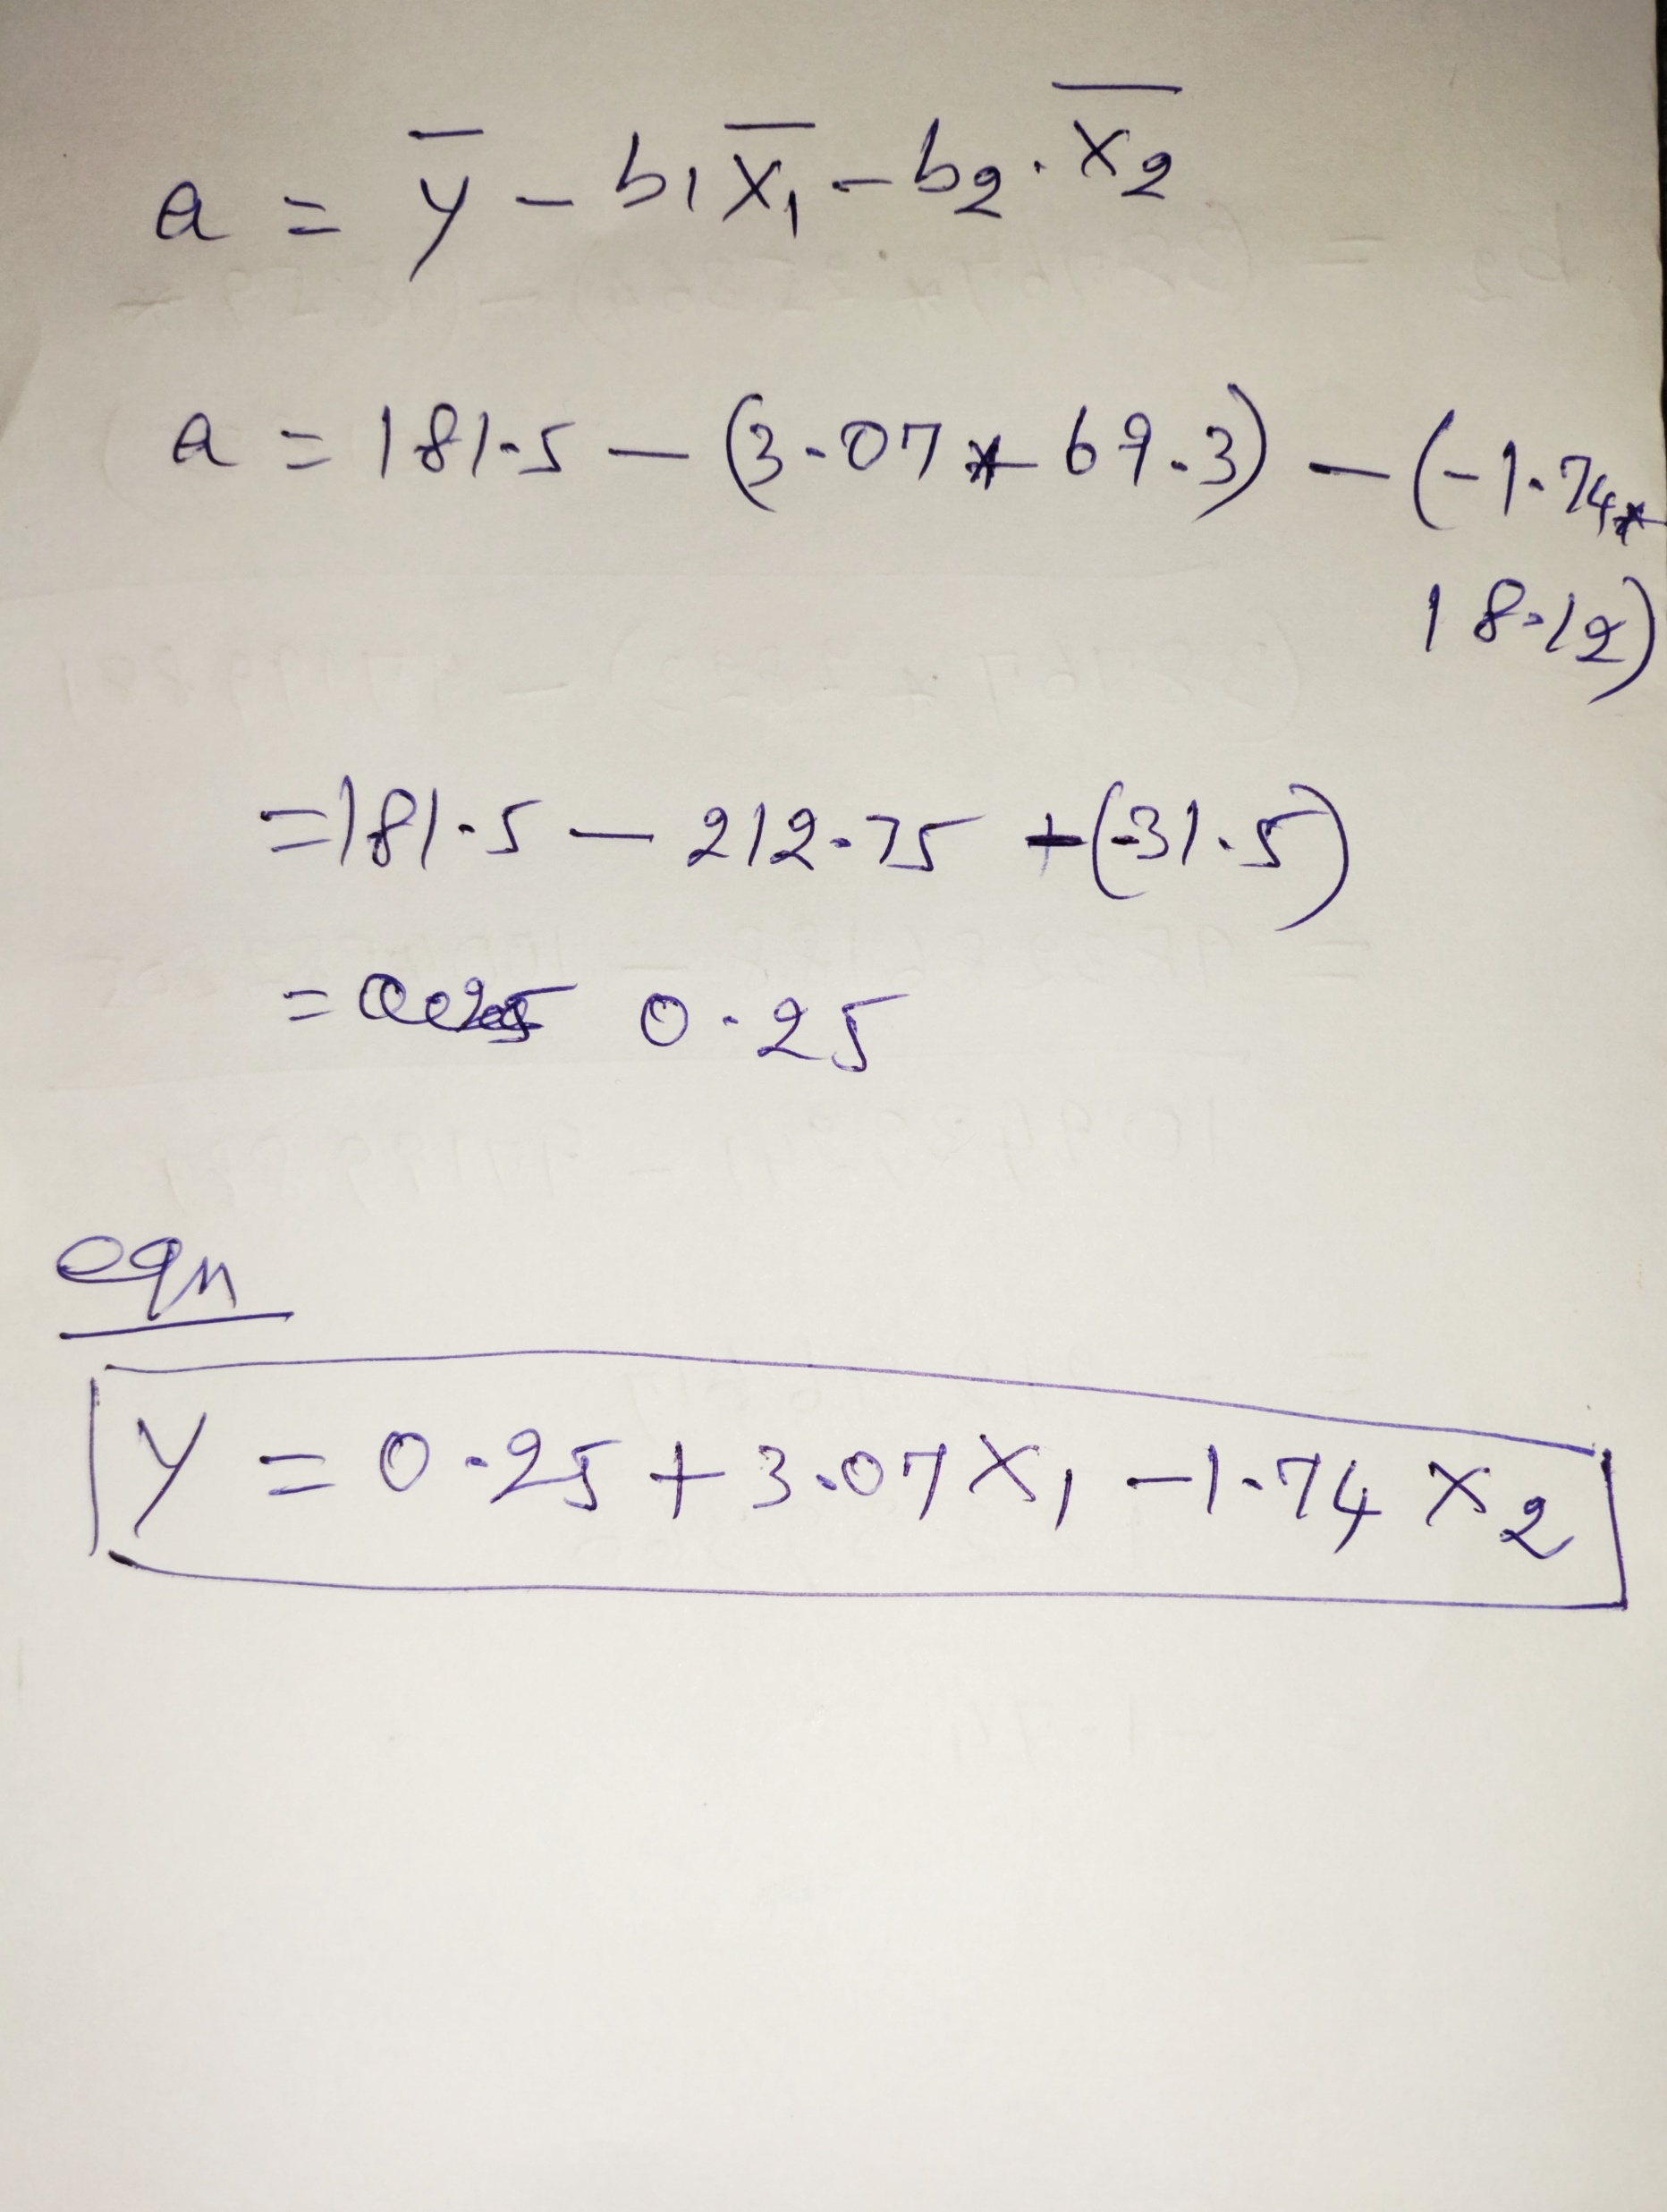 a = y̅ - b1 x̅₁ - b₂ . x̅₂
a = 181.5 - (3.07 * 69.3) - (-1.74 *
18.12)
= 181.5 - 212.75 + (-31.5)
= 0.25
eqn
y = 0.25 + 3.07 x₁ - 1.74 x₂